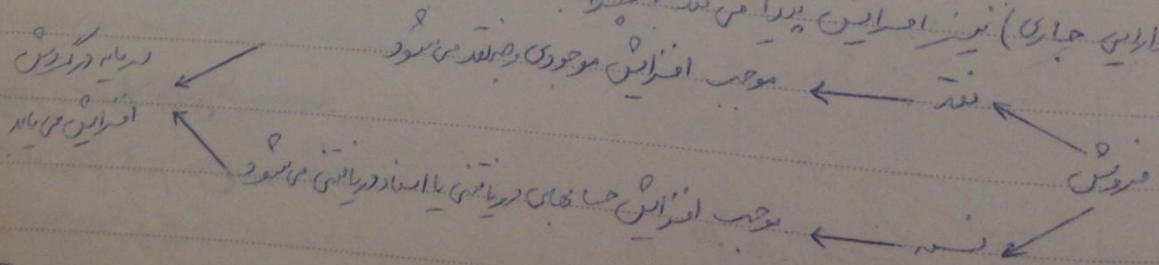 جاری) نیز افزایش پیدا می کند
فروش
نقد
موجب افزایش موجودی وجه نقد می شود
نسیه
موجب افزایش حسابهای دریافتنی یا اسناد دریافتنی می شود
سرمایه در گردش
افزایش می یابد